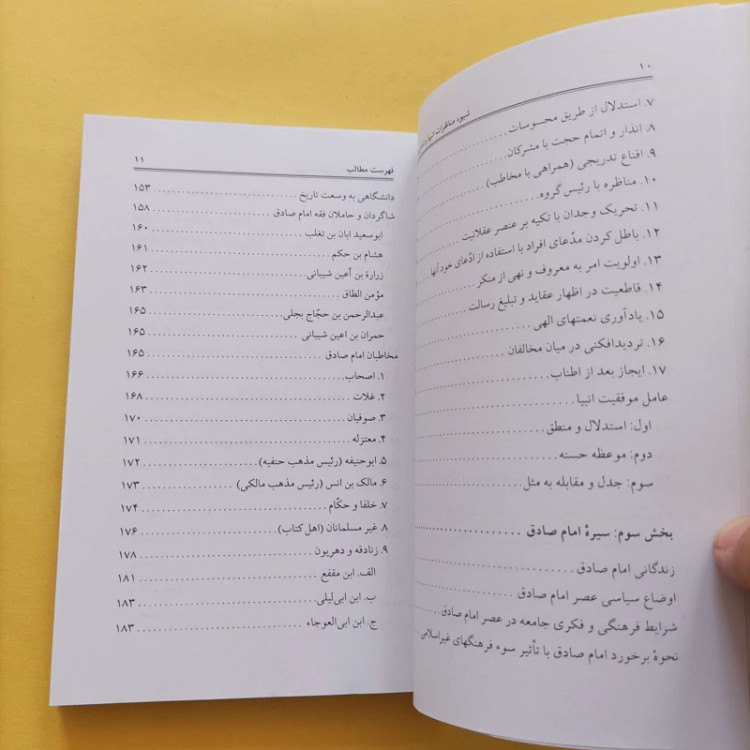 ۱۰
شیوه مناظرات انبیا و
۷. استدلال از طریق محسوسات
۸. انذار و اتمام حجت با مشرکان
۹. اقناع تدریجی (همراهی با مخاطب)
۱۰. مناظره با رئیس گروه
۱۱. تحریک وجدان با تکیه بر عنصر عقلانیت
۱۲. باطل کردن مدّعای افراد با استفاده از ادّعای خود آنها
۱۳. اولویت امر به معروف و نهی از منکر
۱۴. قاطعیت در اظهار عقاید و تبلیغ رسالت
۱۵. یادآوری نعمتهای الهی
۱۶. تردیدافکنی در میان مخالفان
۱۷. ایجاز بعد از اطناب
عامل موفقیت انبیا
اول: استدلال و منطق
دوم: موعظه حسنه
سوم: جدل و مقابله به مثل
بخش سوم: سیرهٔ امام صادق
زندگانی امام صادق
اوضاع سیاسی عصر امام صادق
شرایط فرهنگی و فکری جامعه در عصر امام صادق
نحوهٔ برخورد امام صادق با تأثیر سوء فرهنگهای غیراسلامی
فهرست مطالب ۱۱
دانشگاهی به وسعت تاریخ ۱۵۳
شاگردان و حاملان فقه امام صادق ۱۵۸
ابوسعید ابان بن تغلب ۱۶۰
هشام بن حکم ۱۶۱
زرارة بن أعین شیبانی ۱۶۲
مؤمن الطاق ۱۶۳
عبدالرحمن بن حجّاج بجلی ۱۶۵
حمران بن اعین شیبانی ۱۶۵
مخاطبان امام صادق ۱۶۵
۱. اصحاب ۱۶۶
۲. غلات ۱۶۸
۳. صوفیان ۱۷۰
۴. معتزله ۱۷۱
۵. ابوحنیفه (رئیس مذهب حنفیه) ۱۷۲
۶. مالک بن انس (رئیس مذهب مالکی) ۱۷۳
۷. خلفا و حکّام ۱۷۴
۸. غیر مسلمانان (اهل کتاب) ۱۷۶
۹. زنادقه و دهریون ۱۷۸
الف. ابن مقفع ۱۸۱
ب. ابن ابی‌لیلی ۱۸۳
ج. ابن ابی‌العوجاء ۱۸۳